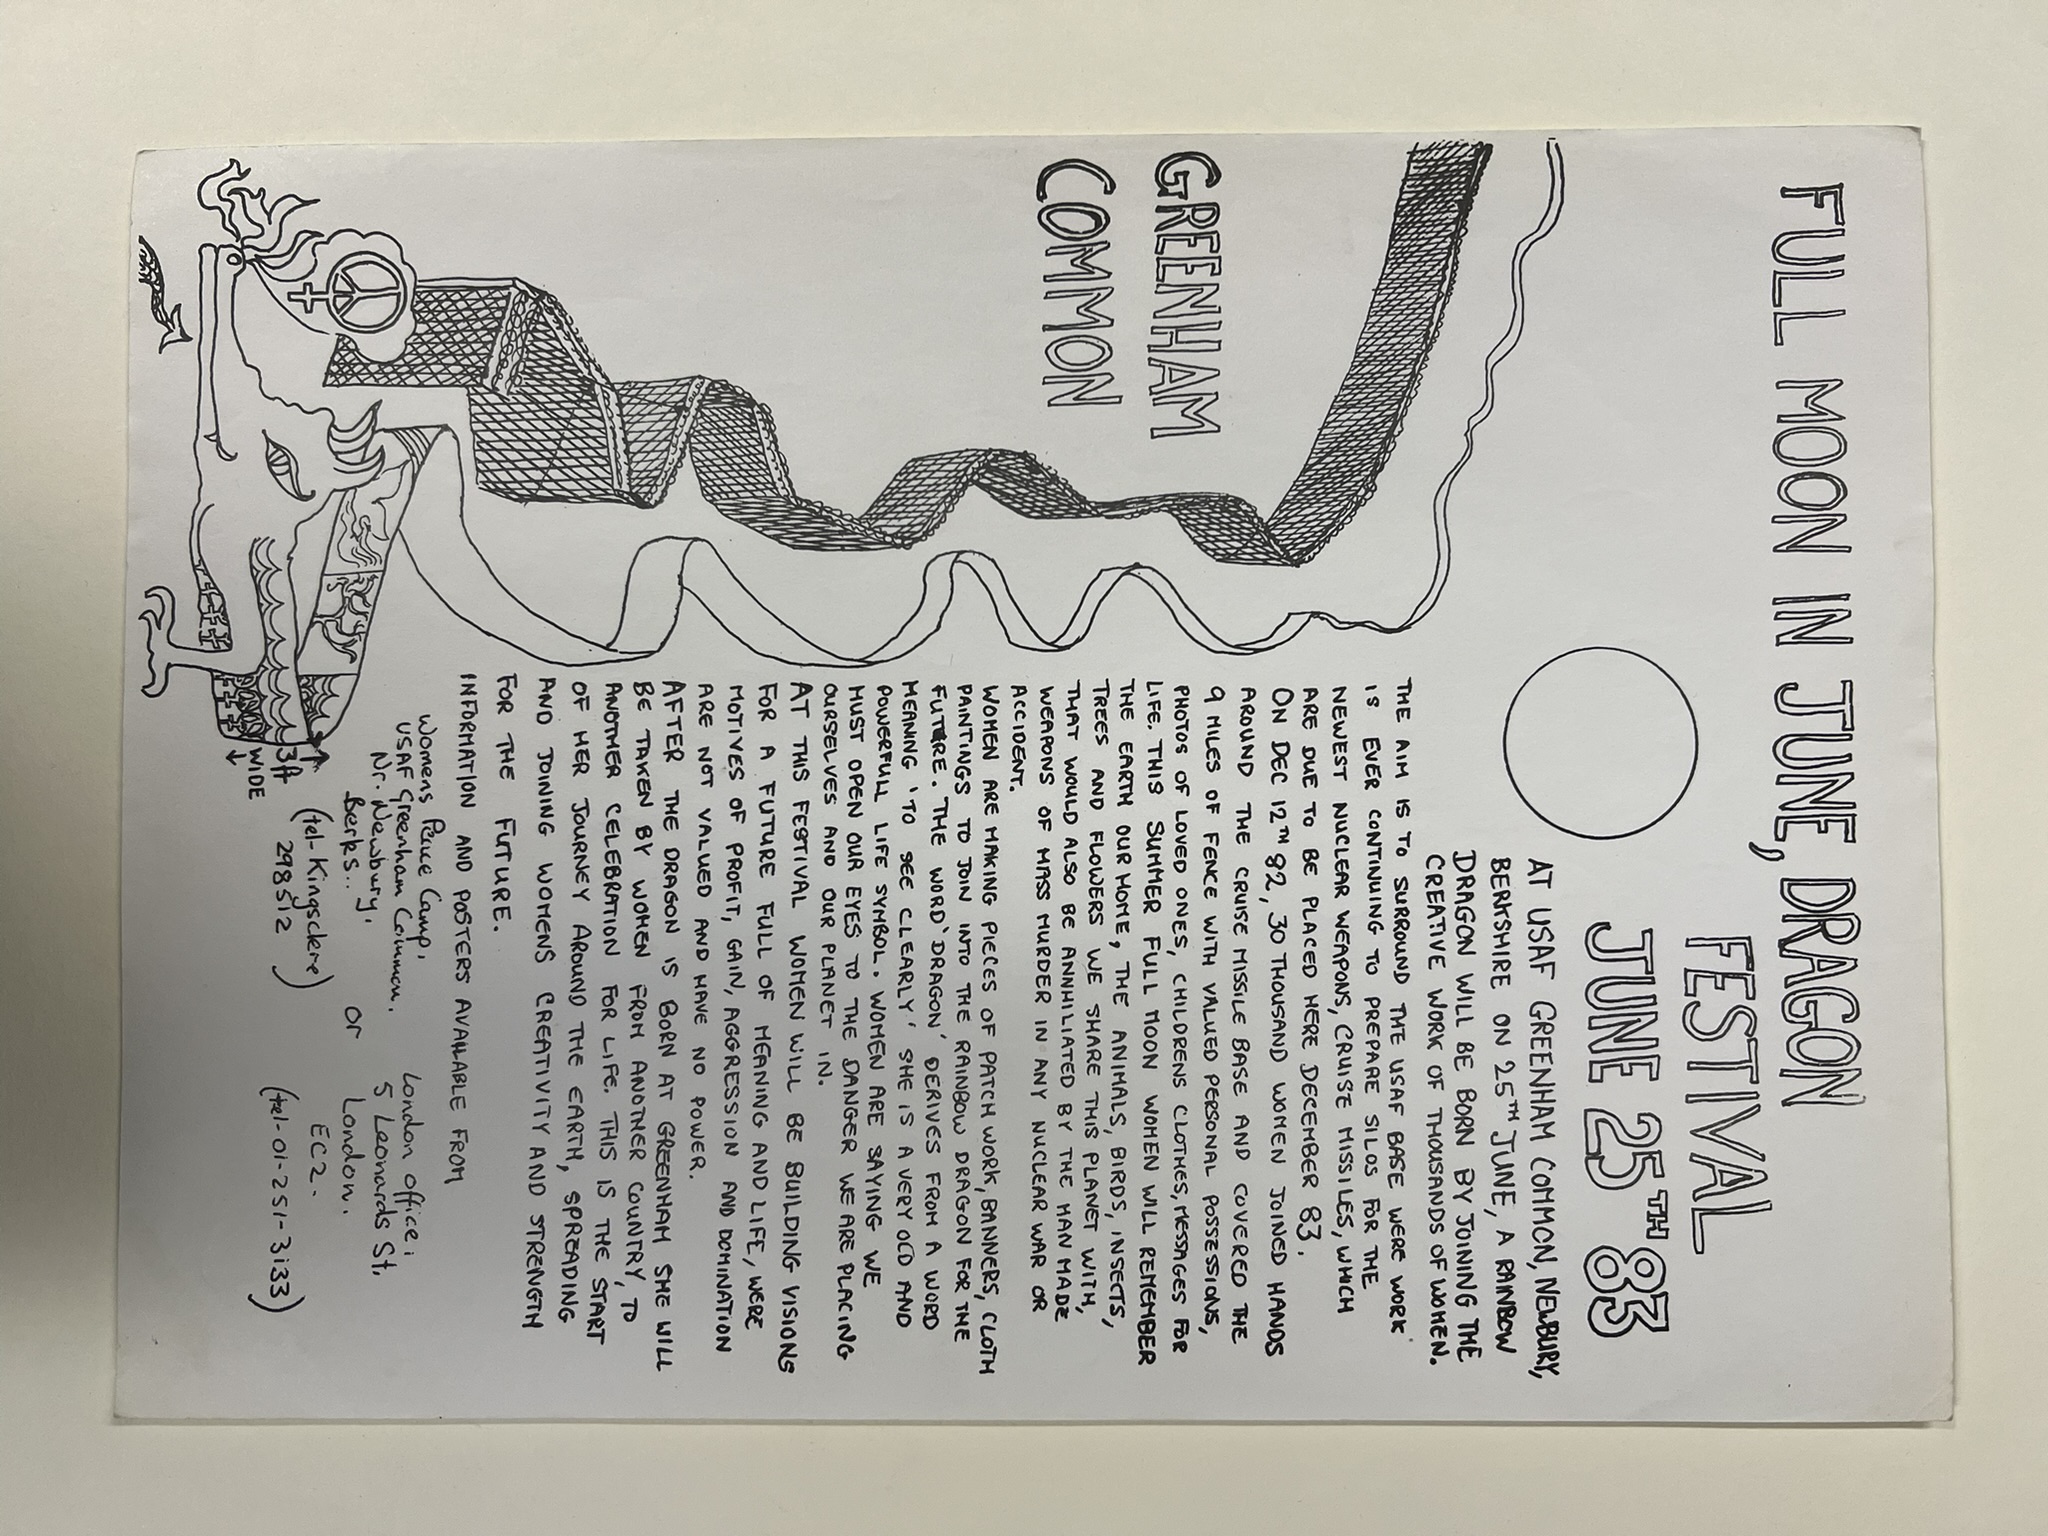 FULL MOON IN JUNE, DRAGON
FESTIVAL
JUNE 25TH 83
AT USAF GREENHAM COMMON, NEWBURY,
BERKSHIRE ON 25TH JUNE, A RAINBOW
DRAGON WILL BE BORN BY JOINING THE
CREATIVE WORK OF THOUSANDS OF WOMEN.
THE AIM IS TO SURROUND THE USAF BASE WERE WORK
IS EVER CONTINUING TO PREPARE SILOS FOR THE
NEWEST NUCLEAR WEAPONS, CRUISE MISSILES, WHICH
ARE DUE TO BE PLACED HERE DECEMBER 83.
ON DEC 12TH 82, 30 THOUSAND WOMEN JOINED HANDS
AROUND THE CRUISE MISSILE BASE AND COVERED THE
9 MILES OF FENCE WITH VALUED PERSONAL POSSESSIONS,
PHOTOS OF LOVED ONES, CHILDRENS CLOTHES, MESSAGES FOR
LIFE. THIS SUMMER FULL MOON WOMEN WILL REMEMBER
THE EARTH OUR HOME, THE ANIMALS, BIRDS, INSECTS,
TREES AND FLOWERS WE SHARE THIS PLANET WITH,
THAT WOULD ALSO BE ANNHILIATED BY THE MAN MADE
WEAPONS OF MASS MURDER IN ANY NUCLEAR WAR OR
ACCIDENT.
WOMEN ARE MAKING PIECES OF PATCH WORK, BANNERS, CLOTH
PAINTINGS TO JOIN INTO THE RAINBOW DRAGON FOR THE
FUTURE. THE WORD 'DRAGON' DERIVES FROM A WORD
MEANING 'TO SEE CLEARLY' SHE IS A VERY OLD AND
POWERFULL LIFE SYMBOL. WOMEN ARE SAYING WE
MUST OPEN OUR EYES TO THE DANGER WE ARE PLACING
OURSELVES AND OUR PLANET IN.
AT THIS FESTIVAL WOMEN WILL BE BUILDING VISIONS
FOR A FUTURE FULL OF MEANING AND LIFE, WERE
MOTIVES OF PROFIT, GAIN, AGGRESSION AND DOMINATION
ARE NOT VALUED AND HAVE NO POWER.
AFTER THE DRAGON IS BORN AT GREENHAM SHE WILL
BE TAKEN BY WOMEN FROM ANOTHER COUNTRY, TO
ANOTHER CELEBRATION FOR LIFE. THIS IS THE START
OF HER JOURNEY AROUND THE EARTH, SPREADING
AND JOINING WOMENS CREATIVITY AND STRENGTH
FOR THE FUTURE.
INFORMATION AND POSTERS AVAILABLE FROM
Womens Peace Camp,
USAF Greenham Common.
Nr. Newbury,
Berks..
(tel- Kingsclere)
298512
or
London office;
5 Leonards St,
London.
EC2.
(tel-01-251-3133)
GREENHAM
COMMON
3ft
WIDE